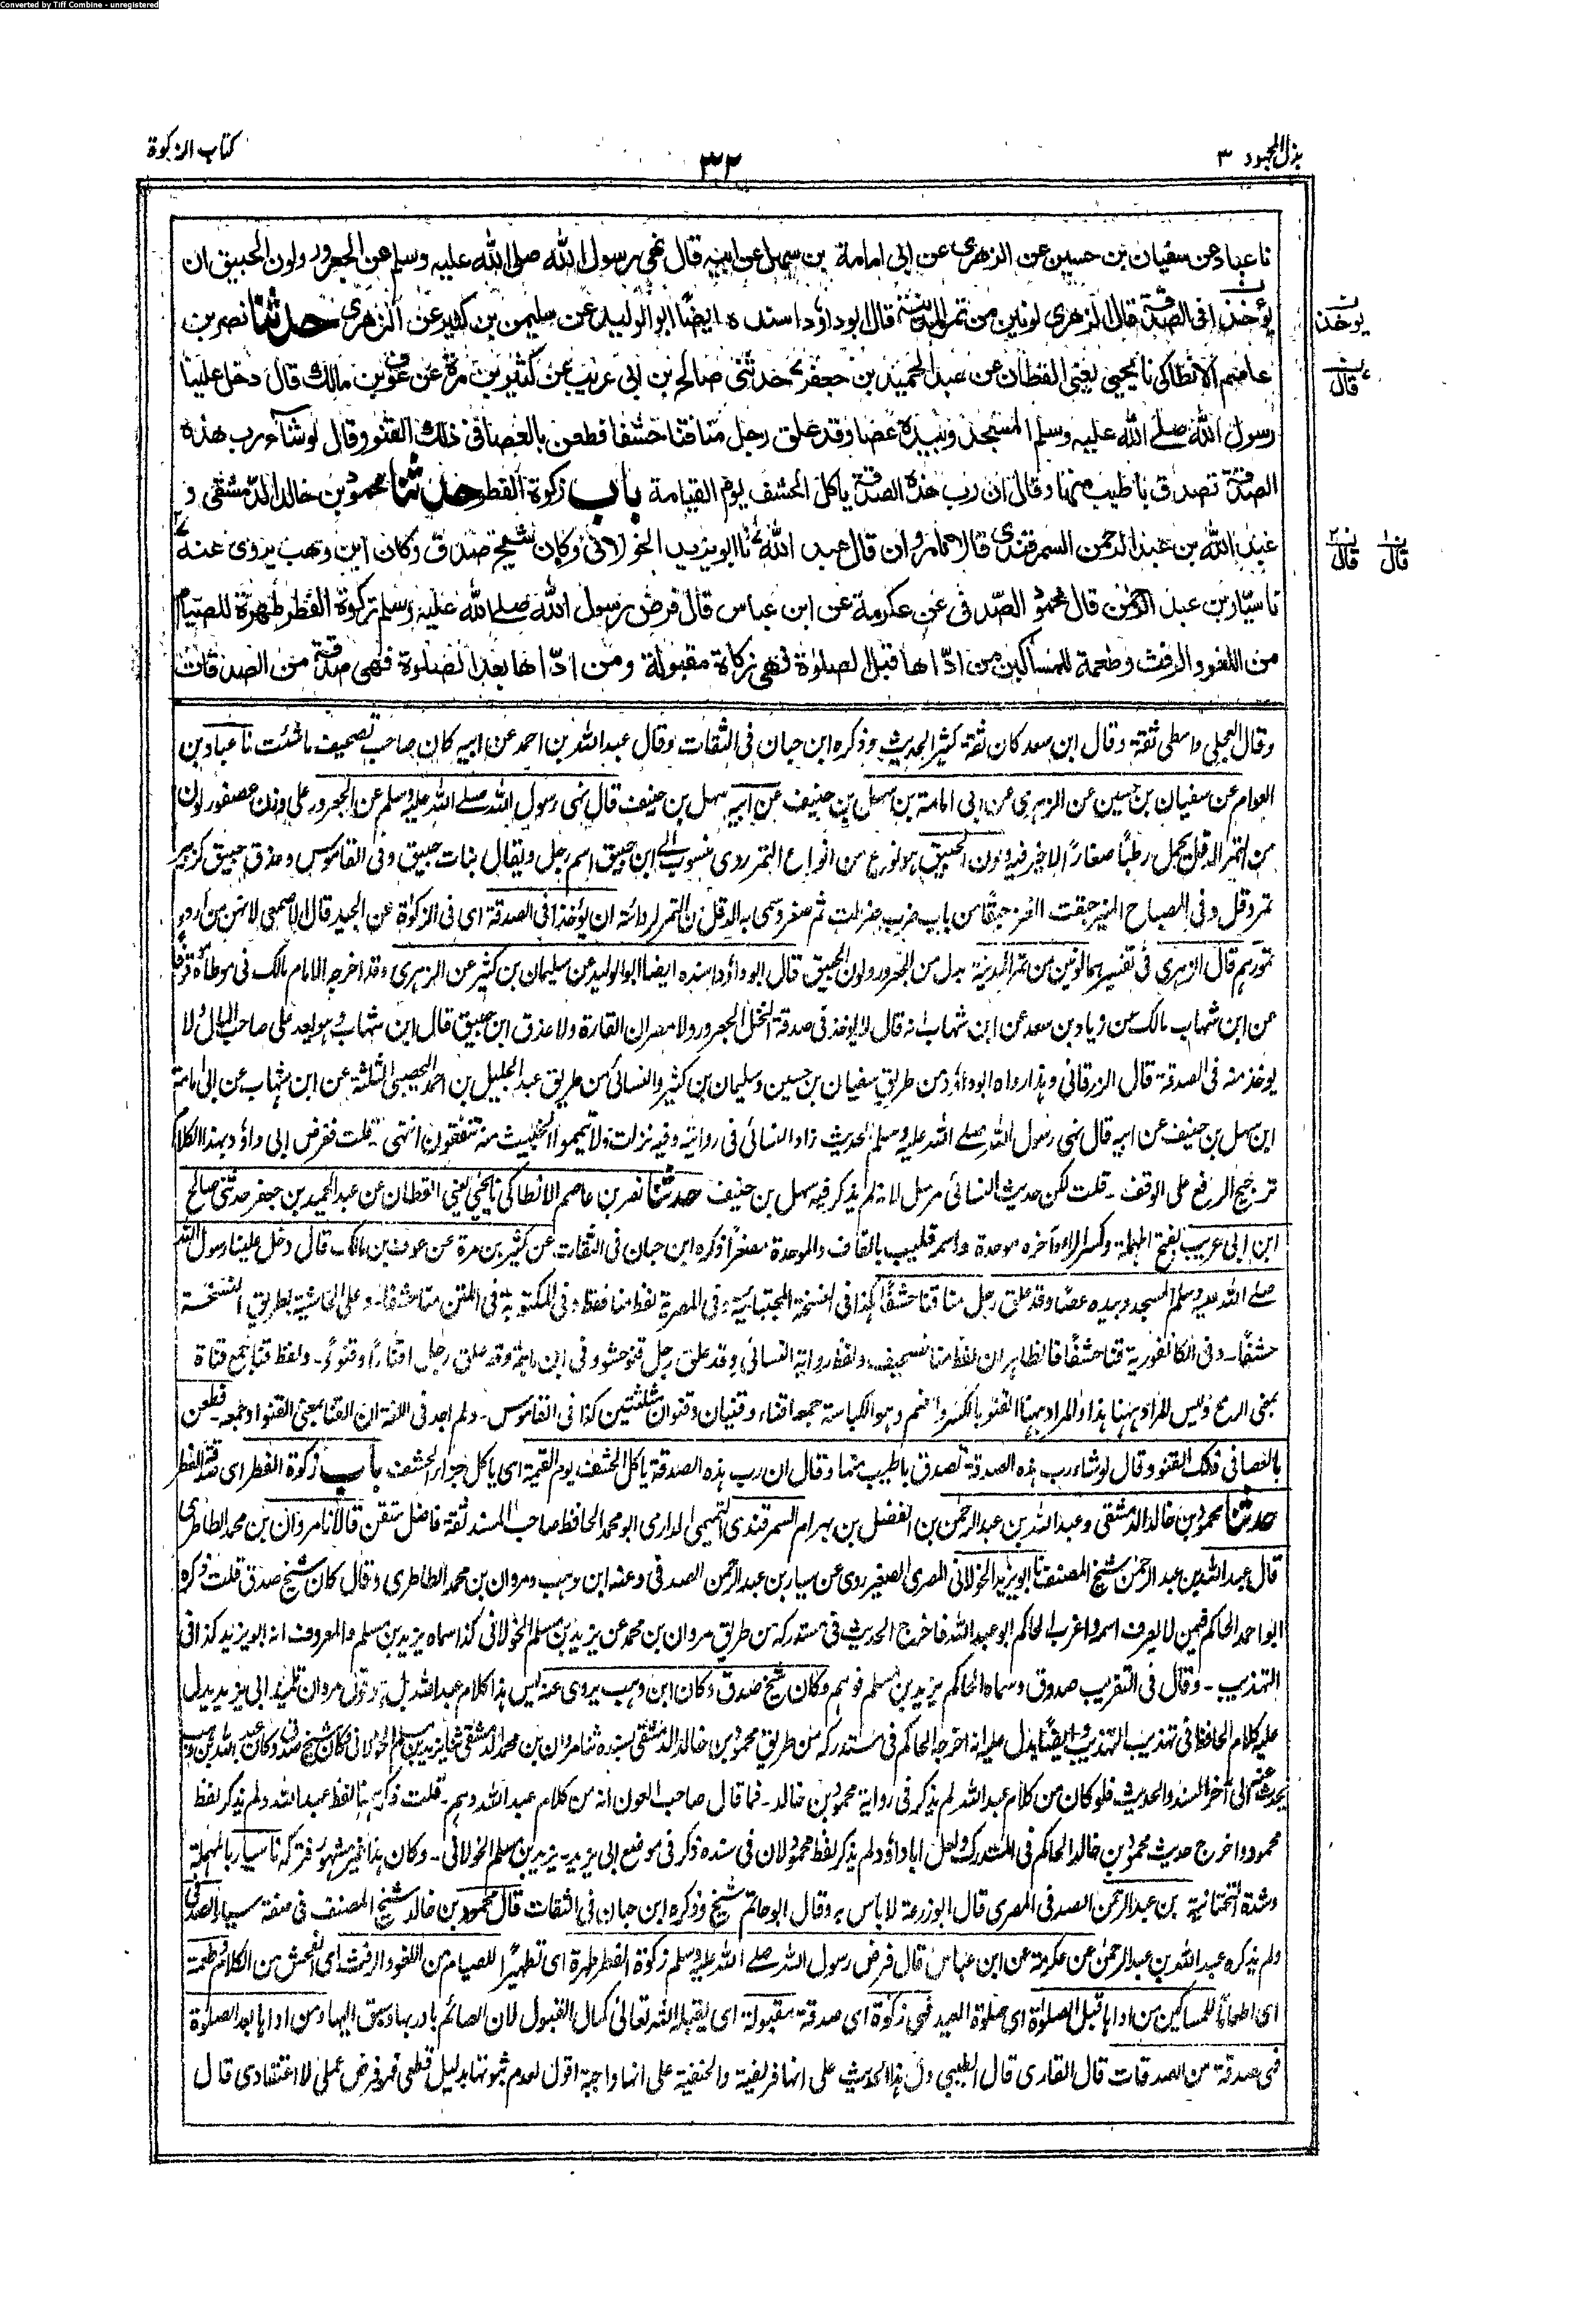 Converted by Tiff Combine - unregistered
بذل المجهود ٣
٣٢
كتاب الزكوة
نا عباد عن سفيان بن حسين عن الزهرى عن ابى امامة بن سهل عن ابيه قال نهى رسول الله صلى الله عليه وسلم عن الجعرور ولون الحبيق ان
يؤخذا فى الصدقة قال الزهرى لونين من تمر المدينة قال ابو داؤد اسنده ايضا ابو الوليد عن سليمن بن كثير عن الزهرى حدثنا نصر بن
عاصم الانطاكى نا يحيى يعنى القطان عن عبد الحميد بن جعفر حدثنى صالح بن ابى عريب عن كثير بن مرة عن عوف بن مالك قال دخل علينا
رسول الله صلے الله عليه وسلم المسجد وبيده عصا وقد علق رجل منا قنا حشفا فطعن بالعصا فى ذلك القنو وقال لو شاء رب هذه
الصدقة تصدق باطيب منها وقال ان رب هذه الصدقة ياكل الحشف يوم القيامة باب زكوة الفطر حدثنا محمود بن خالد الدمشقى و
عبد الله بن عبد الرحمن السمرقندى قالا نا مروان قال عبد الله نا ابو يزيد الخولانى وكان شيخ صدق وكان ابن وهب يروى عنه
نا سيار بن عبد الرحمن قال محمود الصدفى عن عكرمة عن ابن عباس قال فرض رسول الله صلے الله عليه وسلم زكوة الفطر طهرة للصيام
من اللغو والرفث وطعمة للمساكين من ادّاها قبل الصلوة فهى زكاة مقبولة ومن ادّاها بعد الصلوة فهى صدقة من الصدقات
يوخذ
قال
قال قال
وقال العجلى واسطى ثقة وقال ابن سعد كان ثقة كثير الحديث وذكره ابن حبان فى الثقات وقال عبد الله بن احمد عن ابيه كان صاحب تصحيف ما شئت نا عباد بن
العوام عن سفيان بن حسين عن الزهرى عن ابى امامة بن سهل بن حنيف عن ابيه سهل بن حنيف قال نهى رسول الله صلے الله عليه وسلم عن الجعرور على وزن عصفور لون
من التمر الدقل يحمل رطبا صغارا لا خير فيه ولون الحبيق هو نوع من انواع التمر ردى منسوب الى ابن حبيق اسم رجل ويقال بنات حبيق وفى القاموس وعذق حبيق كزبير
تمر دقل وفى المصباح المنير حبقت العنز حبقا من باب ضرب ضرطت ثم صغر وسمى به الدقل من التمر لردائته ان يؤخذا فى الصدقة اى فى الزكوة عن الجيد قال الاصمعى لانهن من اردء
تمورهم قال الزهرى فى تفسيرهما لونين من تمر المدينة بدل من الجعرور ولون الحبيق قال ابو داؤد اسنده ايضا ابو الوليد عن سليمان بن كثير عن الزهرى وقد اخرجه الامام مالك فى موطأه
عن ابن شهاب مالك عن زياد بن سعد عن ابن شهاب انه قال لا يؤخذ فى صدقة النخل الجعرور ولا مصران الفارة ولا عذق ابن حبيق قال ابن شهاب وهو يعد على صاحب المال ولا
يوخذ منه فى الصدقة قال الزرقانى وهذا رواه ابو داؤد من طريق سفيان بن حسين وسليمان بن كثير والنسائى من طريق عبد الجليل بن احمد اليحصبى الثلثة عن ابن شهاب عن ابى امامة
ابن سهل بن حنيف عن ابيه قال نهى رسول الله صلے الله عليه وسلم الحديث زاد النسائى فى روايته وفيه نزلت ولا تيمموا الخبيث منه تنفقون انتهى قلت فغرض ابى داؤد بهذا الكلام
ترجيح الرفع على الوقف - قلت لكن حديث النسائى مرسل لانه لم يذكر فيه سهل بن حنيف حدثنا نصر بن عاصم الانطاكى نا يحيى يعنى القطان عن عبد الحميد بن جعفر حدثنى صالح
ابن ابى عريب بفتح المهملة وكسر الراء وآخره موحدة واسمه قليب بالقاف والموحدة مصغرا ذكره ابن حبان فى الثقات عن كثير بن مرة عن عوف بن مالك قال دخل علينا رسول الله
صلے الله عليه وسلم المسجد وبيده عصا وقد علق رجل منا قنا حشفا كذا فى النسخة المجتبائية وفى المصرية لفظ منا فقط وفى المكتوبة فى المتن منا حشفا - وعلى الحاشية بطريق النسخة
حشفا - وفى الكانفورية قنا حشفا فالظاهر ان لفظ منا تصحيف ولفظ رواية النسائى وقد علق رجل قنو حشو وفى ابن ماجة وقد علق رجل اقناء او قنوا - ولفظ قنا جمع قناة
بمعنى الرمح وليس المراد ههنا هذا والمراد ههنا القنو بالكسر والضم وهو الكباسة جمعه اقناء وقنيان وقنوان مثلثتين كذا فى القاموس - ولم اجد فى اللغة ان القنا بمعنى القنو او جمعه - فطعن
بالعصا فى ذلك القنو وقال لو شاء رب هذه الصدقة تصدق باطيب منها وقال ان رب هذه الصدقة ياكل الحشف يوم القيمة اى ياكل جزاء الحشف باب زكوة الفطر اى صدقة الفطر
حدثنا محمود بن خالد الدمشقى وعبد الله بن عبد الرحمن بن الفضل بن بهرام السمرقندى التميمى الدارمى ابو محمد الحافظ صاحب المسند ثقة فاضل متقن قالا نا مروان بن محمد الطاطرى
قال عبد الله بن عبد الرحمن شيخ المصنف نا ابو يزيد الخولانى المصرى الصغير روى عن سيار بن عبد الرحمن الصدفى وعنه ابن وهب ومروان بن محمد الطاطرى وقال كان شيخ صدق قلت ذكره
ابو احمد الحاكم فيمن لا يعرف اسمه واغرب الحاكم ابو عبد الله فاخرج الحديث فى مستدركه من طريق مروان بن محمد عن يزيد بن مسلم الخولانى كذا سماه يزيد بن مسلم والمعروف انه ابو يزيد كذا فى
التهذيب - وقال فى التقريب صدوق وسماه الحاكم يزيد بن مسلم فوهم وكان شيخ صدق وكان ابن وهب يروى عنه ليس هذا كلام عبد الله بل هو قول مروان تلميذ ابى يزيد يدل
عليه كلام الحافظ فى تهذيب التهذيب وايضا يدل عليه انه اخرجه الحاكم فى مستدركه من طريق محمود بن خالد الدمشقى بسنده ثنا مروان بن محمد الدمشقى ثنا يزيد بن مسلم الخولانى وكان شيخ صدق وكان عبد الله بن وهب
يحدث عنه الى آخر السند والحديث فلو كان من كلام عبد الله لم يذكره فى رواية محمود بن خالد - فما قال صاحب العون انه من كلام عبد الله وهم - قلت ذكر ههنا لفظ عبد الله ولم يذكر لفظ
محمود واخرج حديث محمود بن خالد الحاكم فى المستدرك ولعل ابا داؤد لم يذكر لفظ محمود لان فى سنده ذكر فى موضع ابى يزيد - يزيد بن مسلم الخولانى - وكان هذا غير مشهور فتركه نا سيار بالمهملة
وشدة التحتانية بن عبد الرحمن الصدفى المصرى قال ابو زرعة لا باس به وقال ابو حاتم شيخ وذكره ابن حبان فى الثقات قال محمود بن خالد شيخ المصنف فى صفة سيار الصدفى
ولم يذكره عبد الله بن عبد الرحمن عن عكرمة عن ابن عباس قال فرض رسول الله صلے الله عليه وسلم زكوة الفطر طهرة اى تطهيرا للصيام من اللغو والرفث اى الفحش من الكلام وطعمة
اى اطعاما للمساكين من اداها قبل الصلوة اى صلوة العيد فهى زكوة اى صدقة مقبولة اى يقبله الله تعالى كمال القبول لان الصائم بادر بها وسبق اليها ومن اداها بعد الصلوة
فهى صدقة من الصدقات قال القارى قال الطيبى دل هذا الحديث على انها فريضة والحنفية على انها واجبة اقول لعدم ثبوتها بدليل قطعى فهو فرض عملى لا اعتقادى قال